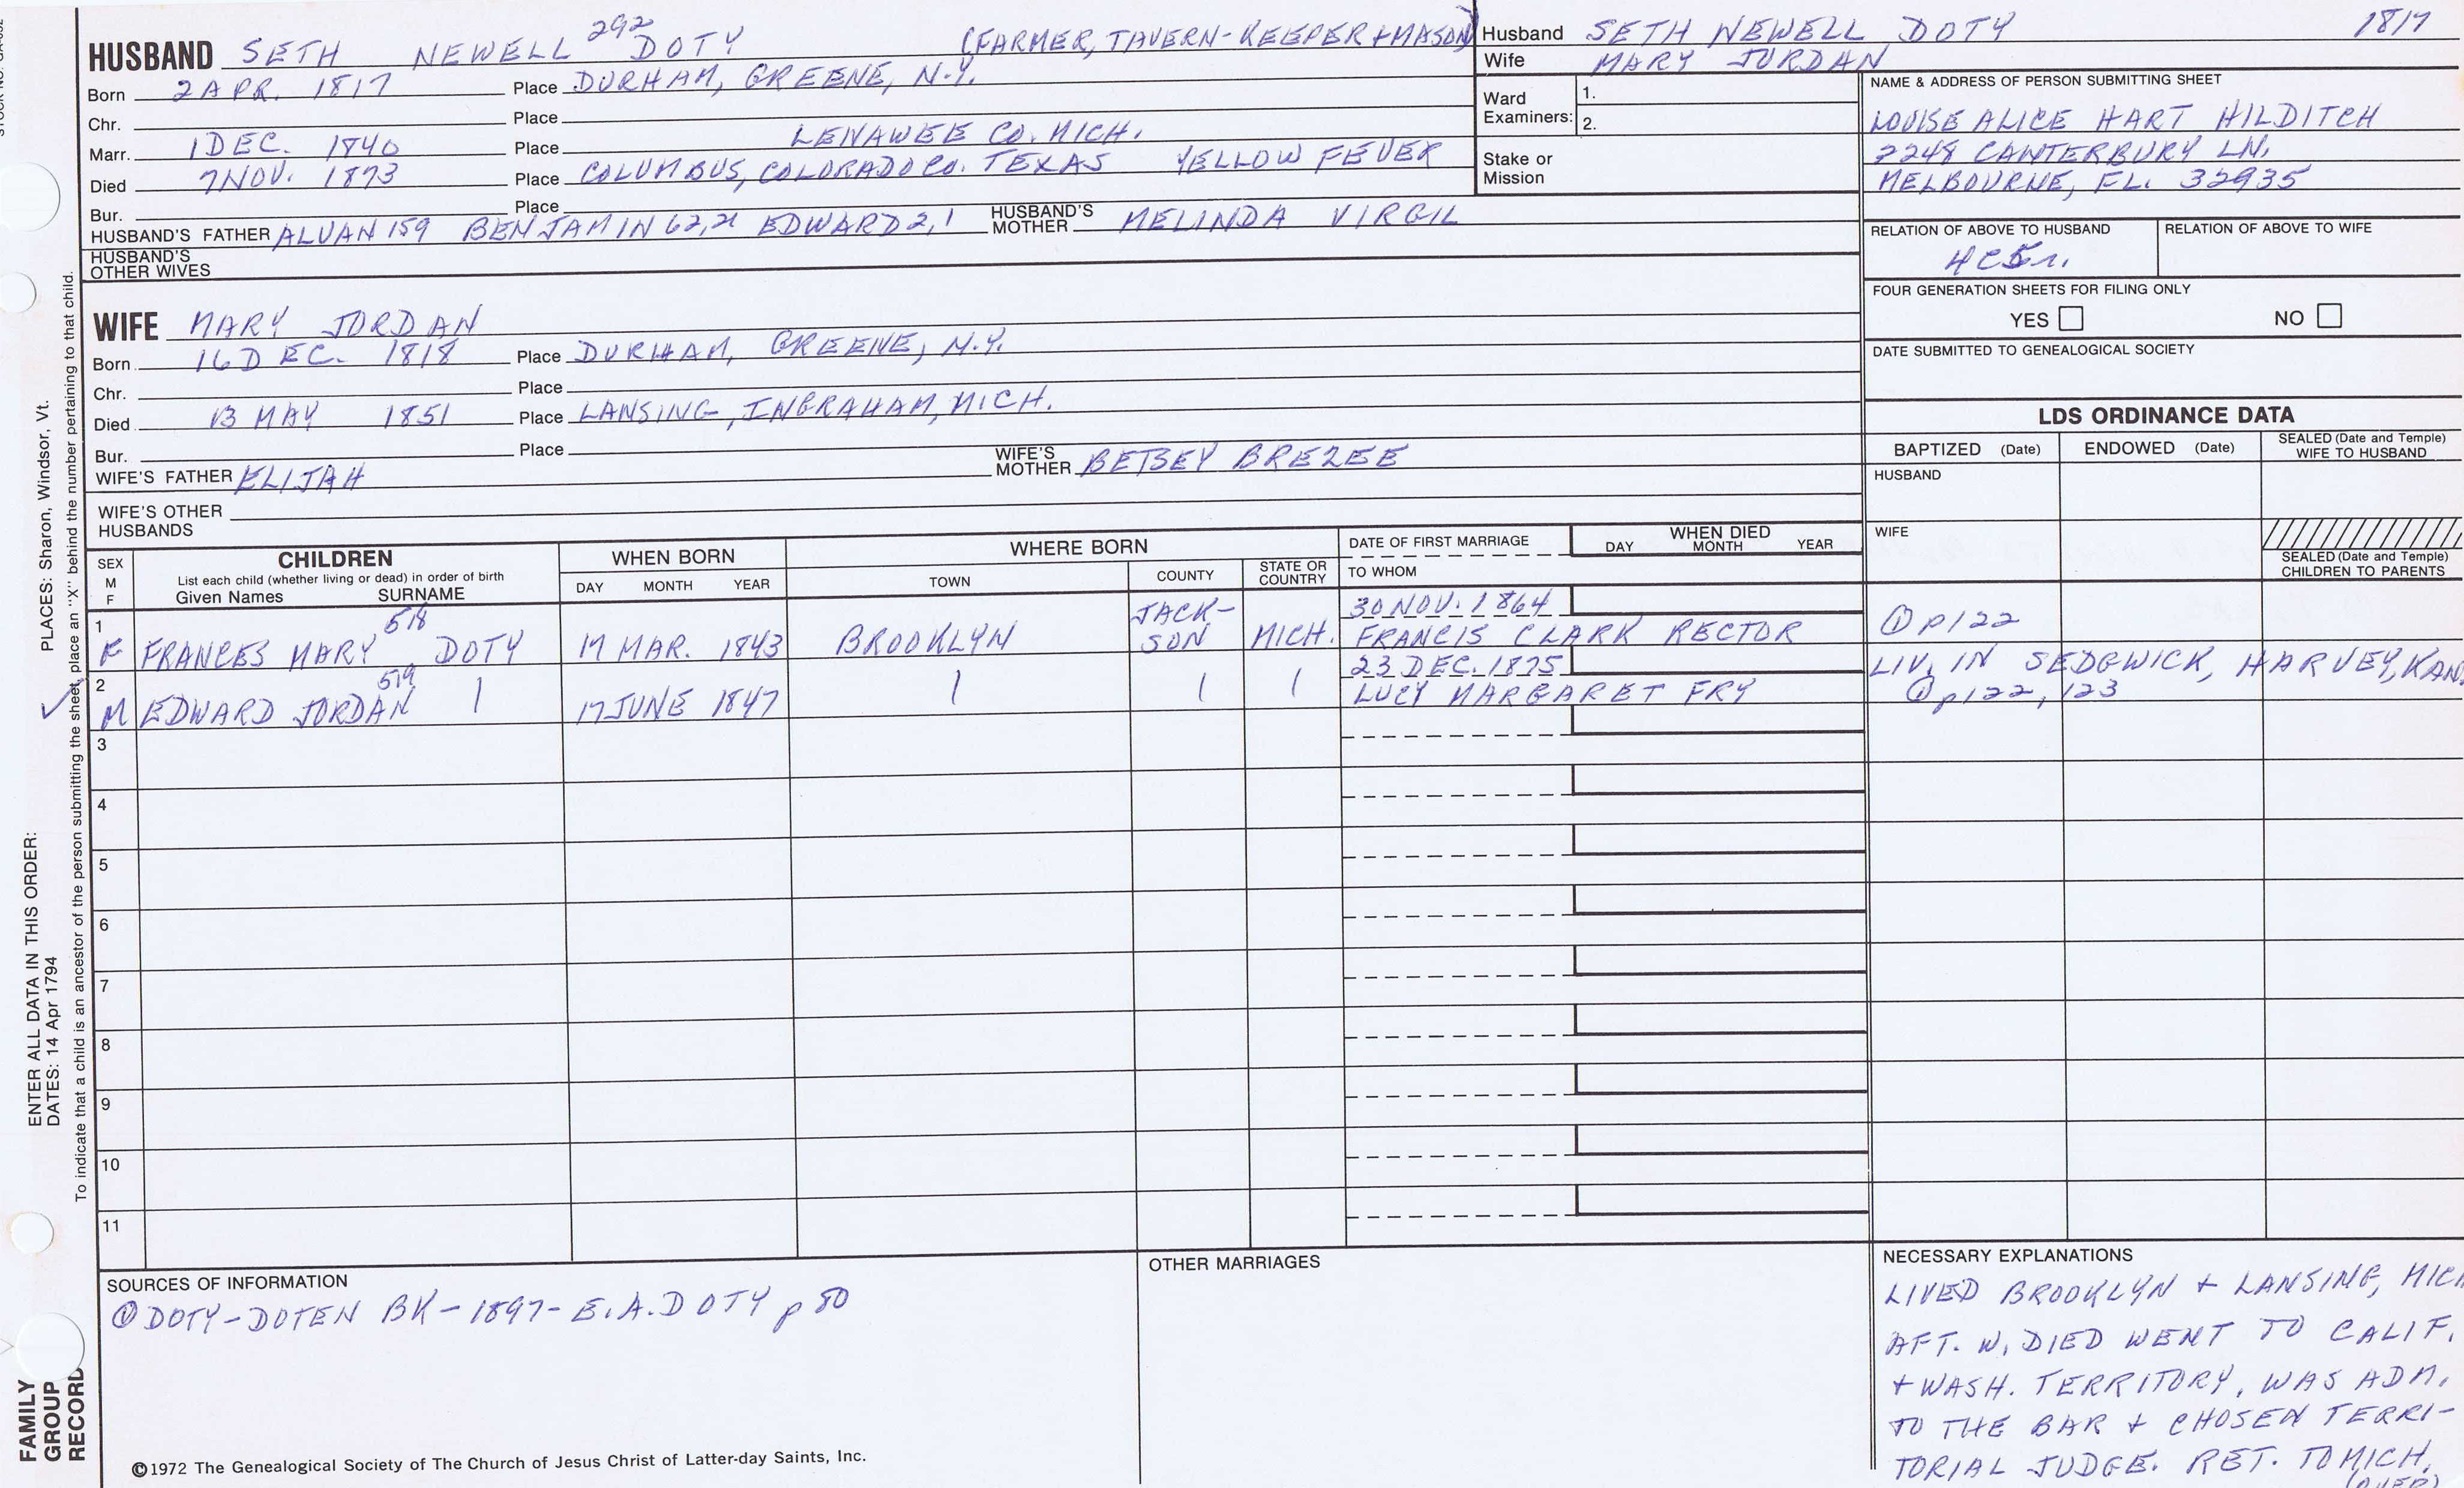 STOCK NO. GA-052
PLACES: Sharon, Windsor, Vt.
ENTER ALL DATA IN THIS ORDER:
DATES: 14 Apr 1794
To indicate that a child is an ancestor of the person submitting the sheet, place an "X" behind the number pertaining to that child.
FAMILY GROUP RECORD
HUSBAND SETH NEWELL 292 DOTY (FARMER, TAVERN-KEEPER + MASON)
Born 2 APR. 1817 Place DURHAM, GREENE, N.Y.
Chr. Place
Marr. 1 DEC. 1840 Place LENAWEE CO. MICH.
Died 7 NOV. 1873 Place COLUMBUS, COLORADO CO. TEXAS YELLOW FEVER
Bur. Place
HUSBAND'S FATHER ALVAN 159 BENJAMIN 62,21 EDWARD 2,1 HUSBAND'S MOTHER MELINDA VIRGIL
HUSBAND'S OTHER WIVES
WIFE MARY JORDAN
Born 16 DEC. 1818 Place DURHAM, GREENE, N.Y.
Chr. Place
Died 13 MAY 1851 Place LANSING, INGRAHAM, MICH.
Bur. Place
WIFE'S FATHER ELIJAH WIFE'S MOTHER BETSEY BREZEE
WIFE'S OTHER HUSBANDS
Husband SETH NEWELL DOTY 1817
Wife MARY JORDAN
Ward Examiners: 1.
2.
Stake or Mission
NAME & ADDRESS OF PERSON SUBMITTING SHEET
LOUISE ALICE HART HILDITCH
2248 CANTERBURY LN.
MELBOURNE, FL. 32935
RELATION OF ABOVE TO HUSBAND RELATION OF ABOVE TO WIFE
4C5r.
FOUR GENERATION SHEETS FOR FILING ONLY
YES NO
DATE SUBMITTED TO GENEALOGICAL SOCIETY
LDS ORDINANCE DATA
BAPTIZED (Date) ENDOWED (Date) SEALED (Date and Temple) WIFE TO HUSBAND
HUSBAND
WIFE
SEALED (Date and Temple) CHILDREN TO PARENTS
SEX M F CHILDREN WHEN BORN WHERE BORN DATE OF FIRST MARRIAGE WHEN DIED
List each child (whether living or dead) in order of birth
Given Names SURNAME DAY MONTH YEAR TOWN COUNTY STATE OR COUNTRY TO WHOM DAY MONTH YEAR
1 F FRANCES MARY 518 DOTY 19 MAR. 1843 BROOKLYN JACK-SON MICH. 30 NOV. 1864 FRANCIS CLARK RECTOR ① p122
2 M EDWARD JORDAN 519 | 17 JUNE 1847 | | | 23 DEC. 1875 LUCY MARGARET FRY LIV. IN SEDGWICK, HARVEY, KAN.
① p122, 123
3
4
5
6
7
8
9
10
11
SOURCES OF INFORMATION
① DOTY-DOTEN BK-1897-E.A. DOTY p 80
©1972 The Genealogical Society of The Church of Jesus Christ of Latter-day Saints, Inc.
OTHER MARRIAGES
NECESSARY EXPLANATIONS
LIVED BROOKLYN + LANSING, MICH
AFT. W. DIED WENT TO CALIF.
+ WASH. TERRITORY, WAS ADM.
TO THE BAR + CHOSEN TERRI-
TORIAL JUDGE. RET. TO MICH.
(OVER)